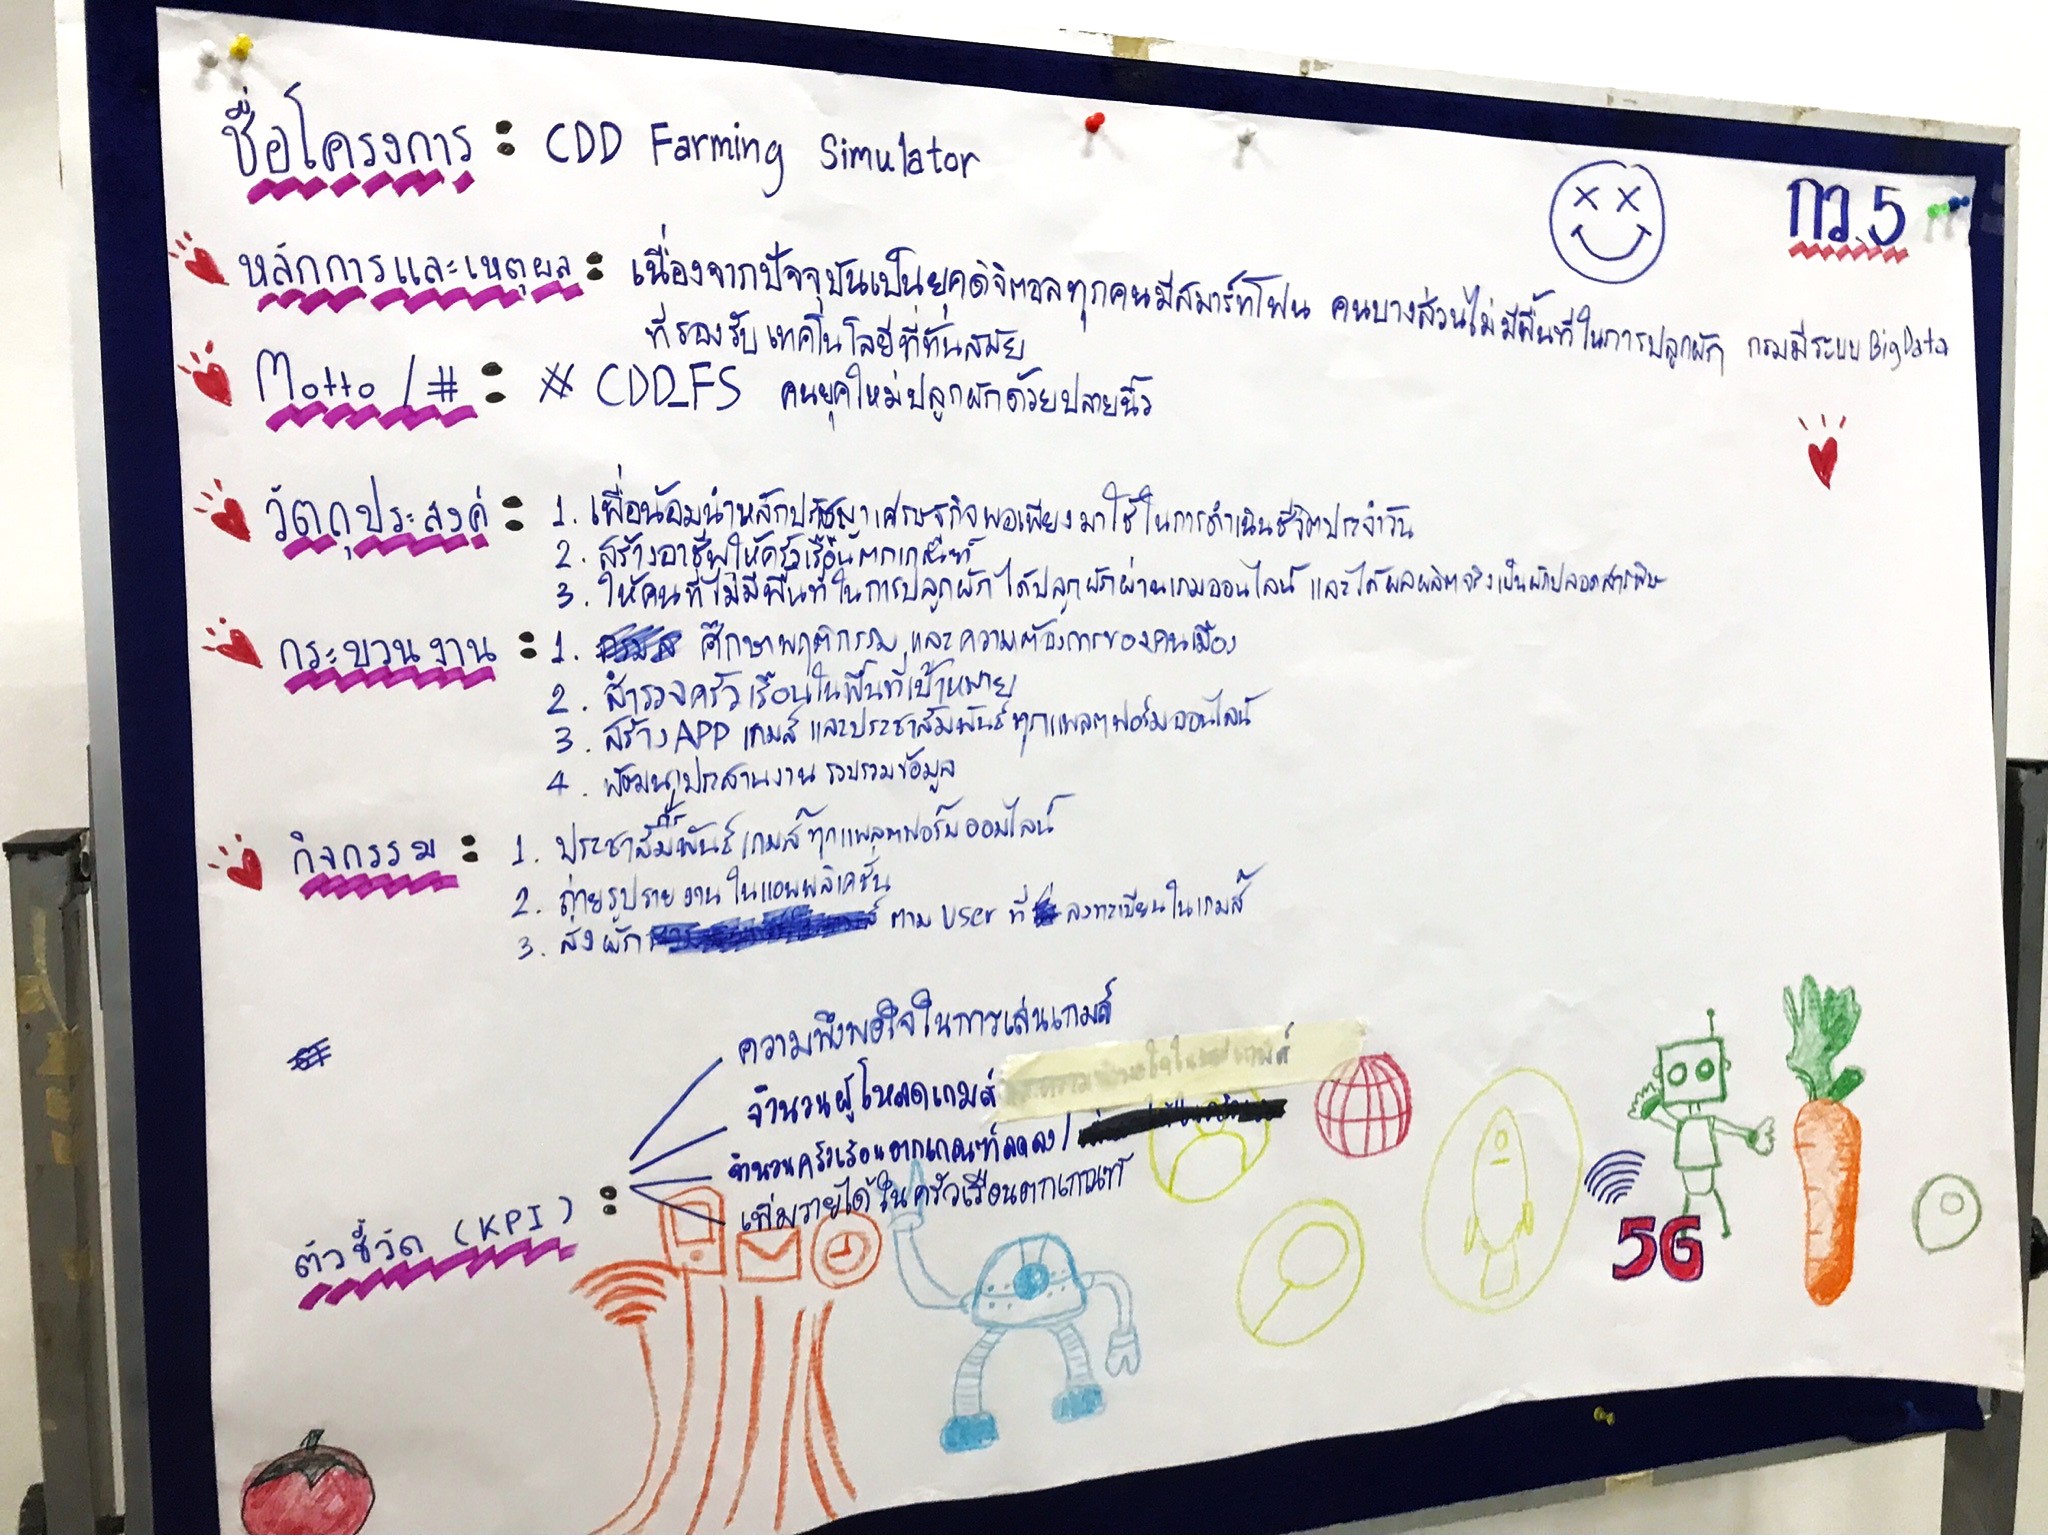 ชื่อโครงการ : CDD Farming Simulator
กว.5
หลักการและเหตุผล : เนื่องจากปัจจุบันเป็นยุคดิจิตอลทุกคนมีสมาร์ทโฟน คนบางส่วนไม่มีพื้นที่ในการปลูกผัก กรมมีระบบ Big Data
ที่รองรับเทคโนโลยีที่ทันสมัย
Motto / # : # CDD_FS คนยุคใหม่ปลูกผักด้วยปลายนิ้ว
วัตถุประสงค์ : 1. เพื่อน้อมนำหลักปรัชญาเศรษฐกิจพอเพียงมาใช้ในการดำเนินชีวิตประจำวัน
2. สร้างอาชีพให้ครัวเรือนตกเกณฑ์
3. ให้คนที่ไม่มีพื้นที่ในการปลูกผัก ได้ปลูกผักผ่านเกมออนไลน์ และได้ผลผลิตจริงเป็นผักปลอดสารพิษ
กระบวนงาน : 1. ศึกษาพฤติกรรม และความต้องการของคนเมือง
2. สำรวจครัวเรือนในพื้นที่เป้าหมาย
3. สร้าง APP เกมส์ และประชาสัมพันธ์ทุกแพลตฟอร์มออนไลน์
4. พัฒนาประสานงาน รวบรวมข้อมูล
กิจกรรม : 1. ประชาสัมพันธ์เกมส์ทุกแพลตฟอร์มออนไลน์
2. ถ่ายรูปรายงานในแอพพลิเคชั่น
3. ส่งผัก ตาม user ที่ลงทะเบียนในเกมส์
ความพึงพอใจในการเล่นเกมส์
จำนวนผู้โหลดเกมส์
จำนวนครัวเรือนตกเกณฑ์ลดลง /
เพิ่มรายได้ในครัวเรือนตกเกณฑ์
ตัวชี้วัด (KPI) :
5G